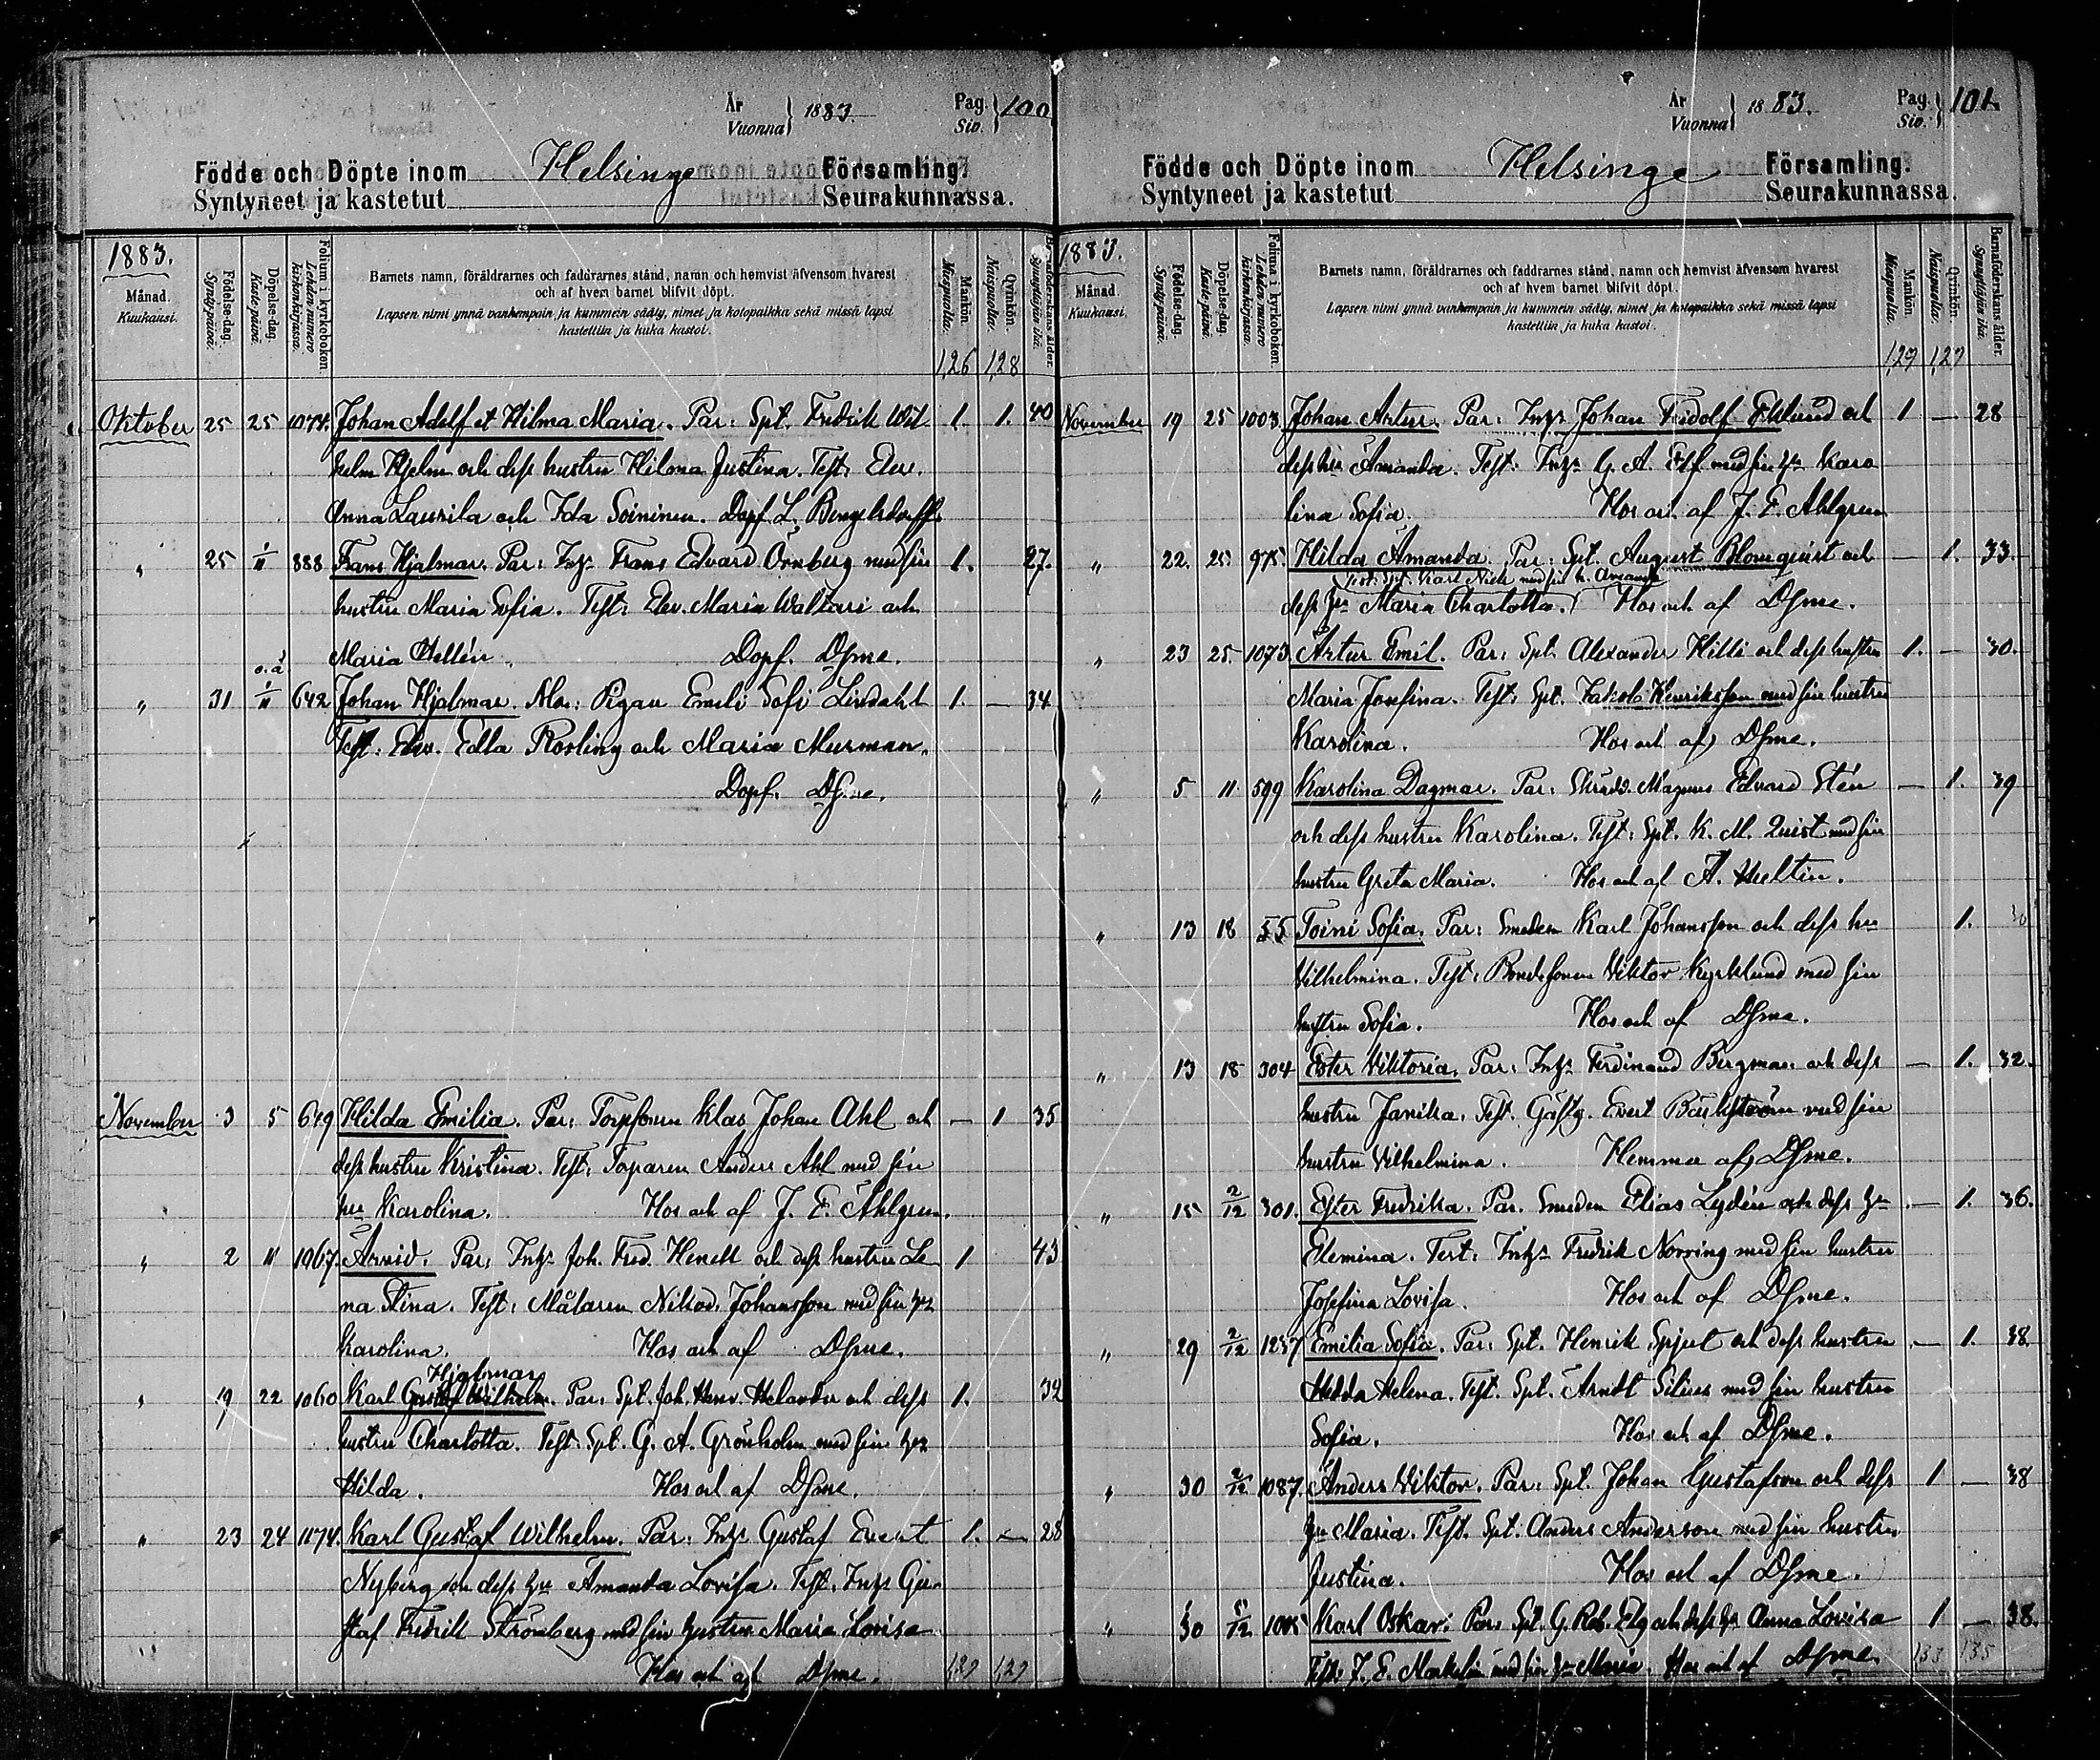 År
Vuonna } 1883. Pag.
Siv. } 100
Födde och Döpte inom Helsinge Församling.
Syntyneet ja kastetut Seurakunnassa.
1883.
Månad.
Kuukausi.
Födelse-dag.
Syntypäivä.
Döpelse-dag.
Kaste-päivä.
Folium i kyrkoboken
Lehden numero
kirkonkirjassa.
Barnets namn, föräldrarnes och faddrarnes stånd, namn och hemvist äfvensom hvarest
och af hvem barnet blifvit döpt.
Lapsen nimi ynnä vanhempain ja kummein sääty, nimet ja kotopaikka sekä missä lapsi
kastettiin ja kuka kastoi.
Mankön.
Miespuolia.
Qvinkön.
Naispuolia.
Barnaföderskans ålder.
Synnyttäjän ikä.
126 128
Oktober 25 25 1074. Johan Adolf et Hilma Maria. Par: Spt. Fredrik Wil 1. 1. 40
helm Hjelm och dess hustru Hilma Justina. Test: Elev.
Anna Laurila och Ida Soininen. Dopf. L. Bengelsdorff.
" 25 1/11 888 Frans Hjalmar. Par: Inhs Frans Edvard Örnberg med sin 1. 27.
hustru Maria Sofia. Test: Elev. Maria Waltari och
Maria Hellén. Dopf. Dsme.
o. ä
" 31 1/11 642 Johan Hjalmar. Mo: Pigan Emili Sofi Lindahl 1. — 34
Test: Elev. Edla Rosling och Maria Murman.
Dopf. Dsme.
November 3 5 649 Hilda Emilia. Par: Torpsonen Klas Johan Ahl och — 1 35
dess hustru Kristina. Test: Torparen Anders Ahl med sin
hu Karolina. Hos och af J. E. Ahlgren.
" 2 11 1067. Arvid. Par: Inhs Joh. Fred. Henell och dess hustru Le 1 43
na Stina. Test: Målaren Nikod. Johansson med sin hu
Karolina. Hos och af Dsme.
Hjalmar
" 19 22 1060 Karl Gustaf Wilhelm. Par: Spt. Joh. Henr. Helander och dess 1. 32
hustru Charlotta. Test: Spt. G. A. Grönholm med sin hu
Hilda. Hos och af Dsme.
" 23 24 1174. Karl Gustaf Wilhelm. Par: Inhs Gustaf Evert 1. — 28
Nyberg och dess hu Amanda Lovisa. Test: Inhs Gu-
staf Fredrik Strömberg med sin hustru Maria Lovisa
Hos och af Dsme. 129 129
År
Vuonna } 1883. Pag.
Siv. } 101
Födde och Döpte inom Helsinge Församling.
Syntyneet ja kastetut Seurakunnassa.
1883.
Månad.
Kuukausi.
Födelse-dag.
Syntypäivä.
Döpelse-dag.
Kaste-päivä.
Folium i kyrkoboken
Lehden numero
kirkonkirjassa.
Barnets namn, föräldrarnes och faddrarnes stånd, namn och hemvist äfvensom hvarest
och af hvem barnet blifvit döpt.
Lapsen nimi ynnä vanhempain ja kummein sääty, nimet ja kotopaikka sekä missä lapsi
kastettiin ja kuka kastoi.
Mankön.
Miespuolia.
Qvinkön.
Naispuolia.
Barnaföderskans ålder.
Synnyttäjän ikä.
129 129
November 19 25 1003. Johan Artur. Par: Inhs Johan Fridolf Eklund och 1 — 28
dess hu Amanda. Test: Inhs G. A. Elf med sin hu Karo
lina Sofia. Hos och af J. E. Ahlgren
" 22. 25 975. Hilda Amanda. Par: Spt. August Blomqvist och — 1. 33.
Test: Spt. Karl Nick med sin h. Amanda
dess hu Maria Charlotta. Hos och af Dsme.
" 23 25. 1073. Artur Emil. Par: Spt. Alexander Hilli och dess hustru 1. — 30.
Maria Josefina. Test: Spt. Jakob Henriksson med sin hustru
Karolina. Hos och af Dsme.
" 5 11 599 Karolina Dagmar. Par: Skrädd. Magnus Edvard Stén — 1. 39
och dess hustru Karolina. Test: Spt. K. M. Quist med sin
hustru Greta Maria. Hos och af A. Heltin.
" 13 18 55 Toini Sofia. Par: Smeden Karl Johansson och dess hu 1. 30
Vilhelmina. Test: Bondesonen Viktor Kyrklund med sin
hustru Sofia. Hos och af Dsme.
" 13 18 304 Ester Viktoria. Par: Inhs Ferdinand Bergman och dess — 1. 32.
hustru Janika. Test. Gästg. Evert Bäckström med sin
hustru Vilhelmina. Hemma af Dsme.
" 15 2/12 301. Ester Fredrika. Par. Smeden Elias Lydén och dess hu — 1. 36.
Elemina. Test: Inhs Fredrik Norring med sin hustru
Josefina Lovisa. Hos och af Dsme.
" 29 2/12 1257 Emilia Sofia. Par: Spt. Henrik Spjut och dess hustru — 1. 38.
Hedda Helena. Test. Spt. Arndt Silius med sin hustru
Sofia. Hos och af Dsme.
" 30 2/12 1087. Anders Viktor. Par: Spt. Johan Gustafson och dess 1 — 38
hu Maria. Test. Spt. Anders Anderson med sin hustru
Justina. Hos och af Dsme.
" 30 /12 1005 Karl Oskar. Par. Spt. G. Rob. Elg och dess hu Anna Lovisa 1 — 38.
Test: J. E. med sin hu Maria. Hos och af Dsme 133 135